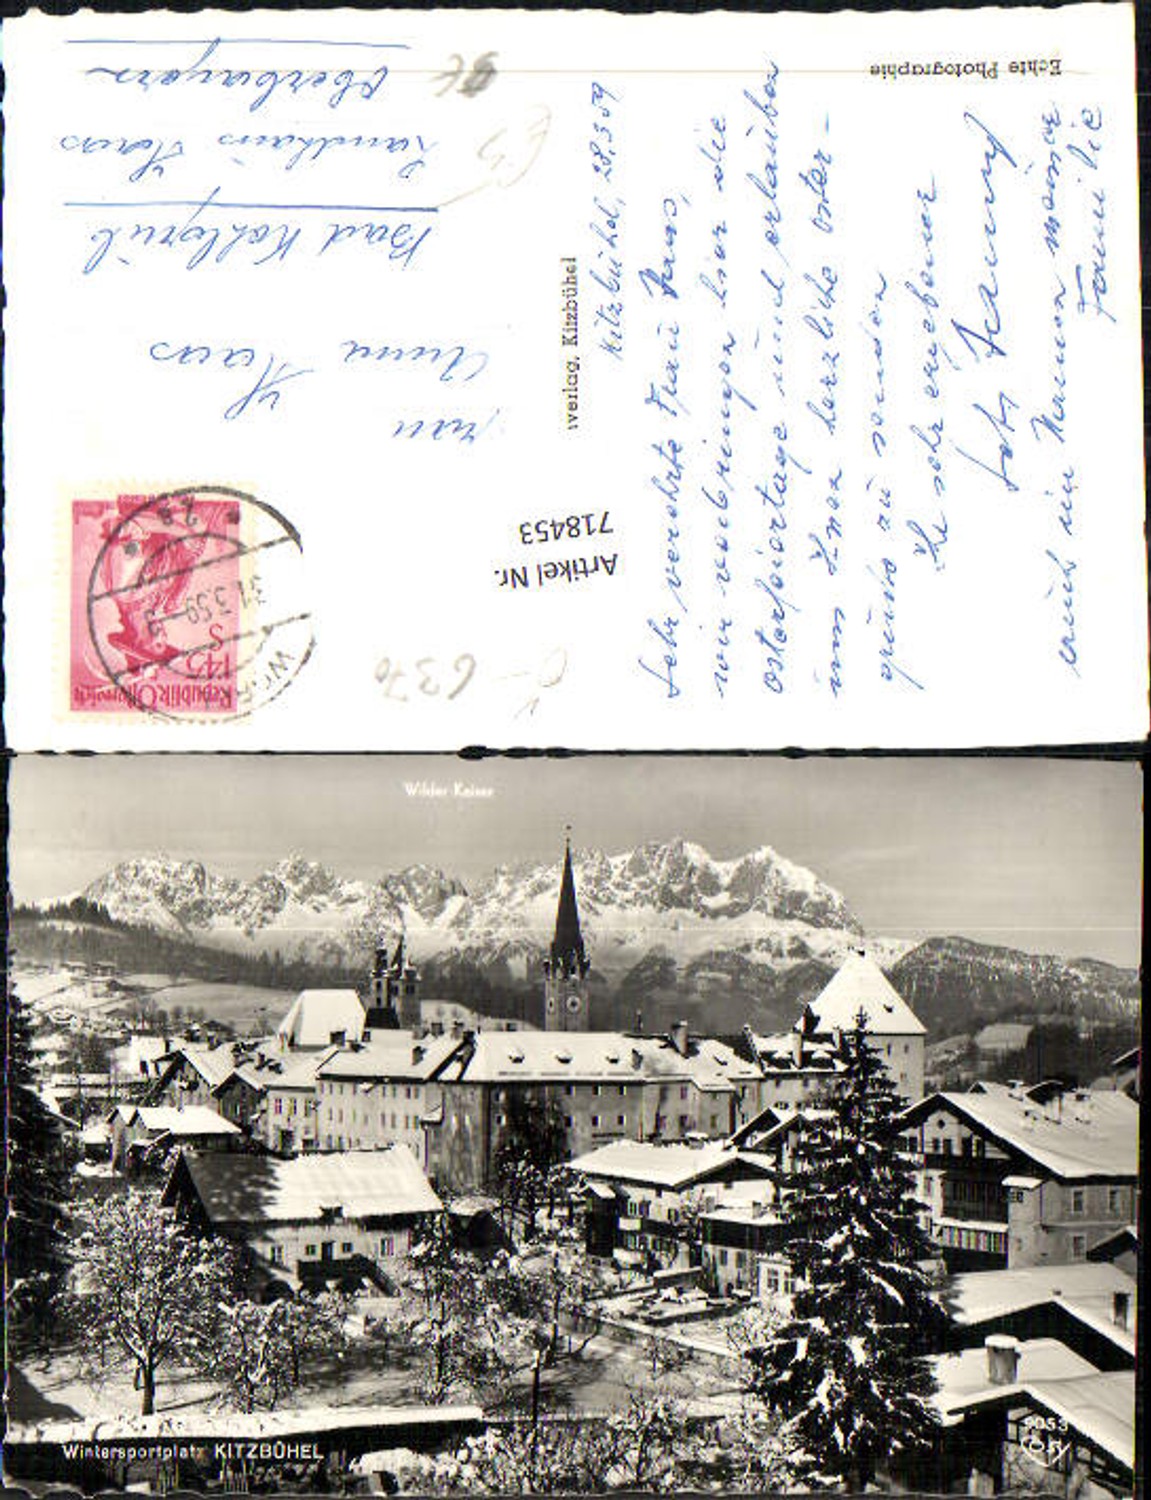 Echte Photographie
Kitzbühel, 28.3.59
Sehr verehrte Frau Haas,
wir verbringen hier die
Osterfeiertage und erlauben
uns Ihnen herzliche Oster-
grüsse zu senden
Ihr sehr ergebener
auch im Namen meiner
Familie
verlag, Kitzbühel
Frau
Anna Haas
Bad Kohlgrub
Landhaus Haas
Oberbayern
Artikel Nr.
718453
6370
Republik Österreich
1.45
S
31.3.59
Wilder Kaiser
Wintersportplatz KITZBÜHEL